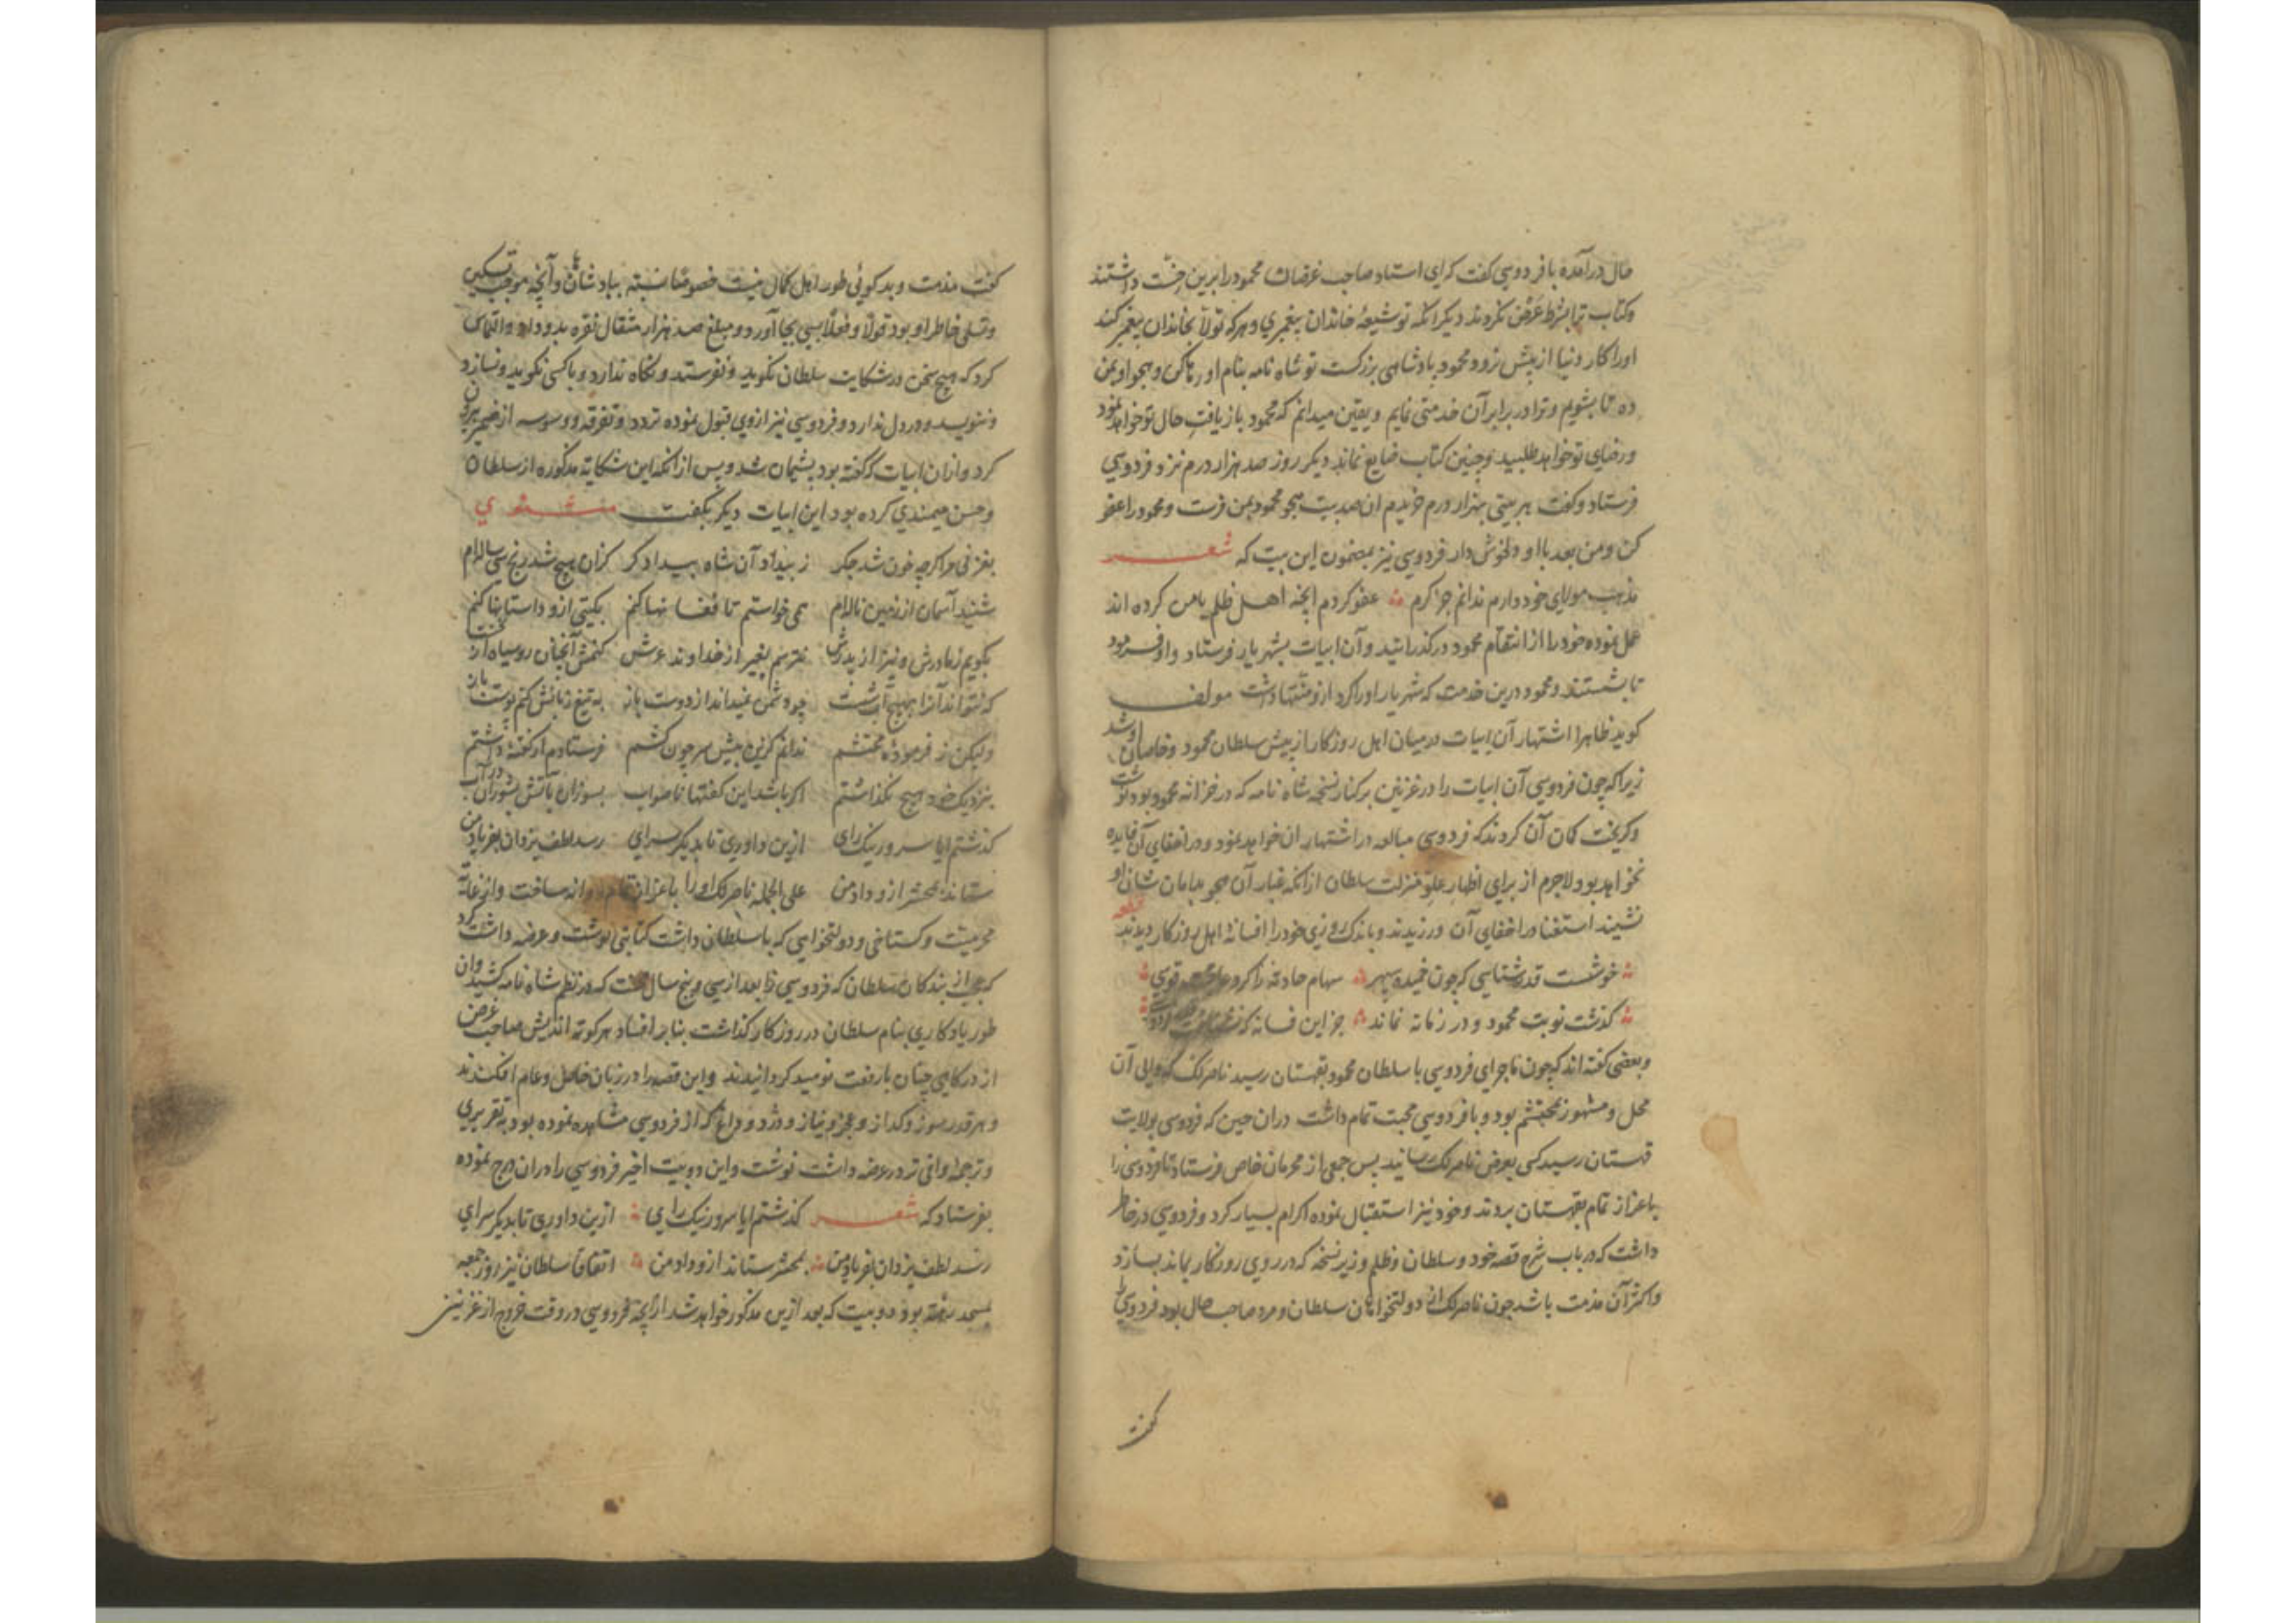 حال درآمده با فردوسی گفت که ای استاد صاحب غرضان محمود را برین داشتند
و کتاب ترا بشرط عرض نکردند دیگر آنکه تو شیعهٔ خاندان پیغمبری و هرکه تولا بخاندان پیغمبر کند
او را کار دنیا از پیش نرود محمود پادشاهی بزرگست تو شاه نامه بنام او رها کن و هجو او بمن
ده تا بشویم و ترا در برابر آن خدمتی نمایم و یقین میدانم که محمود باز یافت حال تو خواهد نمود
و رضای تو خواهد طلبید و چنین کتاب ضایع نماند دیگر روز صد هزار درم نزد فردوسی
فرستاد و گفت هر بیتی بهزار درم خریدم آن صد بیت هجو محمود بمن فرست و محمود را عفو
کن و من بعد با او دلخوش دار فردوسی نیز بمضمون این بیت که شعر
مذهب مولای خود دارم ندانم جز کرم عفو کردم آنچه اهل ظلم با من کرده اند
عمل نموده خود را از انتقام محمود در گذرانید و آن ابیات بشهریار فرستاد و او فرمود
تا بشستند و محمود درین خدمت که شهریار او را کرد ازو منتها داشت مولف
گوید ظاهرا اشتهار آن ابیات در میان اهل روزگار از پیش سلطان محمود و خاصان او شد
زیرا که چون فردوسی آن ابیات را در غزنین بر کنار نسخه شاه نامه که در خزانه محمود بود نوشت
و گریخت گمان آن کردند که فردوسی مبالغه در اشتهار آن خواهد نمود و در اخفای آن فایده
نخواهد بود لاجرم از برای اظهار علو منزلت سلطان از آنکه غبار آن هجو بدامان شان او
نشیند استغنا در اخفای آن ورزیدند و باندک روزی خود را افسانهٔ اهل روزگار دیدند قطعه
خوشست قدرشناسی که چون خمیده سپهر سهام حادثه را کرد عاقبت قوسی
گذشت نوبت محمود و در زمانه نماند جز این فسانه که نشناخت قدر فردوسی
و بعضی گفته اند که چون ماجرای فردوسی با سلطان محمود بقهستان رسید ناصرلک که والی آن
محل و مشهور بمحتشم بود و با فردوسی محبت تمام داشت در آن حین که فردوسی بولایت
قهستان رسید کسی بعرض ناصرلک رسانید پس جمعی از محرمان خاص فرستاد تا فردوسی را
باعزاز تمام بقهستان بردند و خود نیز استقبال نموده اکرام بسیار کرد و فردوسی در خاطر
داشت که در باب شرح قصه خود و سلطان و ظلم وزیر نسخه که در روی روزگار بماند بسازد
و اکثر آن مذمت باشد چون ناصرلک از دولتخواهان سلطان و مرد صاحب حال بود فردوسی را
گفت
گفت مذمت و بدگوئی طور اهل کمال نیست خصوصا نسبت بپادشاهان و آنچه موجب تسکین
و تسلی خاطر او بود قولا و فعلا بسی بجا آورد و مبلغ صد هزار مثقال نقره بدو داد و التماس
کرد که هیچ سخن در شکایت سلطان نگوید و نفرستد و نگاه ندارد و با کسی نگوید و نسازد
و ننویسد و در دل ندارد و فردوسی نیز از وی قبول نموده تردد و تفرقه و وسوسه از ضمیر بیرون
کرد و از آن ابیات که گفته بود پشیمان شد و پس از آنکه این شکایت مذکوره از سلطان
و حسن میمندی کرده بود این ابیات دیگر بگفت مثنوی
بغزنی مرا گرچه خون شد جگر ز بیداد آن شاه بیدادگر کزان هیچ شد رنج سی ساله ام
شنید آسمان از زمین ناله ام همی خواستم تا فغانها کنم بگیتی ازو داستانها کنم
بگویم ز مادرش و نیز از پدرش نترسم بغیر از خداوند عرش کنمش آنچنان روسیاه از نخست
که نتواند آنرا بهیچ آب شست چو دشمن نمیداند از دوست باز به تیغ زبانش کنم پوست باز
ولیکن ز فرمودهٔ محتشم ندانم کزین پیش سر چون کشم فرستادم ار گفته داشتم
بنزدیک خود هیچ نگذاشتم اگر باشد این گفتها ناصواب بسوزان بآتش بشویان در آب
گذشتم ایا سرور نیک رای ازین داوری تا بدیگر سرای رسد لطف یزدان بفریاد من
ستاند بمحشر ازو داد من علی الجمله ناصرلک او را باعزاز تمام روانه ساخت و از غایت
محرمیت و گستاخی و دولتخواهی که با سلطان داشت کتابتی نوشت و عرضه داشت کرد
که یکی از بندگان سلطان که فردوسی را بعد از سی و پنج سال که در نظم شاه نامه کشید و آن
طور یادگاری بنام سلطان در روزگار گذاشت بنا بر افساد هر کوته اندیش صاحب غرض
از درگاهی چنان با رفعت نومید گردانیدند و این قصه را در زبان خاص و عام افکندند
و هر قدر سوز و گداز و عجز و نیاز و درد و داغ که از فردوسی مشاهده نموده بود به تقریری
و ترجمهٔ وافی تر در عرضه داشت نوشت و این دو بیت اخیر فردوسی را در آن درج نموده
بفرستاد که شعر گذشتم ایا سرور نیک رای ازین داوری تا بدیگر سرای
رسد لطف یزدان بفریاد من بمحشر ستاند ازو داد من اتفاقا سلطان نیز روز جمعه
بمسجد رفته بود دو بیت که بعد ازین مذکور خواهد شد از آنچه فردوسی در وقت خروج از غزنین